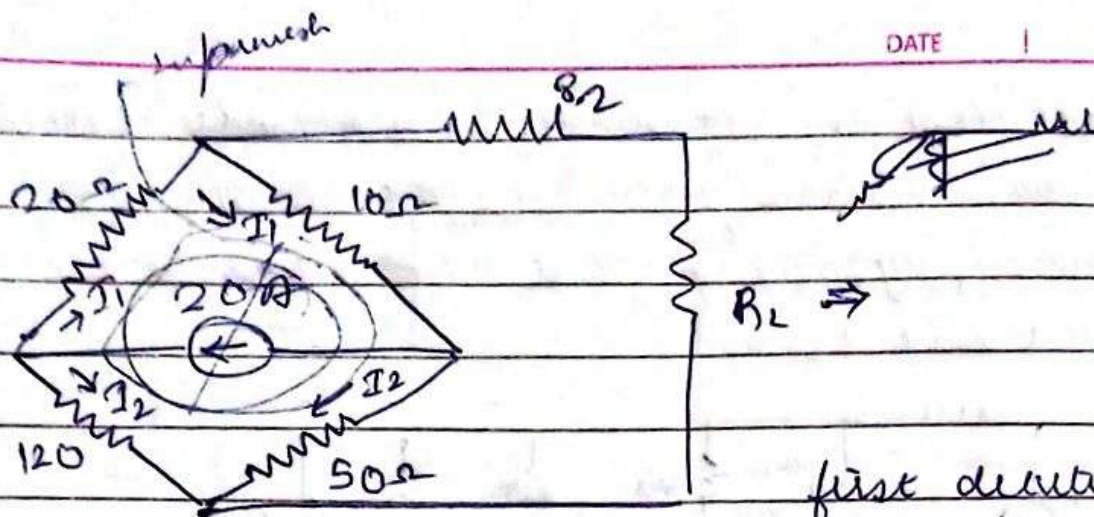 supermesh
DATE
8Ω
20Ω
10Ω
I1
I1
20A
RL ⇒
I2
I2
120
50Ω
first